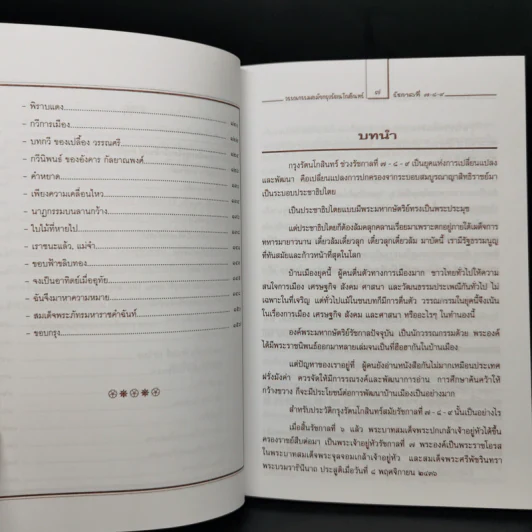 - พิราบแดง
- กวีการเมือง
- บทกวี ของเปลื้อง วรรณศรี
- กวีนิพนธ์ ของอังคาร กัลยาณพงศ์
- คำหยาด
- เพียงความเคลื่อนไหว
- นาฏกรรมบนลานกว้าง
- ใบไม้ที่หายไป
- เราชนะแล้ว, แม่จ๋า
- ขอบฟ้าขลิบทอง
- จงเป็นอาทิตย์เมื่ออุทัย
- ฉันจึงมาหาความหมาย
- สมเด็จพระภัทรมหาราชคำฉันท์
- ขอบกรุง
วรรณกรรมสมัยกรุงรัตนโกสินทร์ ๗ รัชกาลที่ ๗-๘-๙
บทนำ
กรุงรัตนโกสินทร์ ช่วงรัชกาลที่ ๗ - ๘ - ๙ เป็นยุคแห่งการเปลี่ยนแปลง
และพัฒนา คือเปลี่ยนแปลงการปกครองจากระบอบสมบูรณาญาสิทธิราชย์มา
เป็นระบอบประชาธิปไตย
เป็นประชาธิปไตยแบบมีพระมหากษัตริย์ทรงเป็นพระประมุข
แต่ประชาธิปไตยก็ต้องล้มลุกคลุกคลานเรื่อยมาเพราะตกอยู่ภายใต้เผด็จการ
ทหารมายาวนาน เดี๋ยวล้มเดี๋ยวลุก เดี๋ยวลุกเดี๋ยวล้ม มาบัดนี้ เรามีรัฐธรรมนูญ
ที่ทันสมัยและก้าวหน้าที่สุดในโลก
บ้านเมืองยุคนี้ ผู้คนตื่นตัวทางการเมืองมาก ชาวไทยทั่วไปให้ความ
สนใจการเมือง เศรษฐกิจ สังคม ศาสนา และวัฒนธรรมประเพณีกันทั่วไป ไม่
เฉพาะในที่เจริญ แต่ทั่วไปแม้ในชนบทก็มีการตื่นตัว วรรณกรรมในยุคนี้จึงเน้น
ในเรื่องการเมือง เศรษฐกิจ สังคม และศาสนา หรืออะไรๆ ในทำนองนี้
องค์พระมหากษัตริย์รัชกาลปัจจุบัน เป็นนักวรรณกรรมด้วย พระองค์
ได้มีพระราชนิพนธ์ออกมาหลายเล่มจนเป็นที่ฮือฮากันในบ้านเมือง
แต่ปัญหาของเราอยู่ที่ ผู้คนยังอ่านหนังสือกันไม่มากเหมือนประเทศ
ฝรั่งมังค่า ควรจัดให้มีการรณรงค์และพัฒนาการอ่าน การศึกษาค้นคว้าให้
กว้างขวาง ก็จะมีประโยชน์ต่อการพัฒนาบ้านเมืองเป็นอย่างมาก
สำหรับประวัติกรุงรัตนโกสินทร์สมัยรัชกาลที่ ๗ - ๘ - ๙ นั้นเป็นอย่างไร
เมื่อสิ้นรัชกาลที่ ๖ แล้ว พระบาทสมเด็จพระปกเกล้าเจ้าอยู่หัวได้ขึ้น
ครองราชย์สืบต่อมา เป็นพระเจ้าอยู่หัวรัชกาลที่ ๗ พระองค์เป็นพระราชโอรส
ในพระบาทสมเด็จพระจุลจอมเกล้าเจ้าอยู่หัว และสมเด็จพระศรีพัชรินทรา
พระบรมราชินีนาถ ประสูติเมื่อวันที่ ๘ พฤศจิกายน ๒๔๓๖